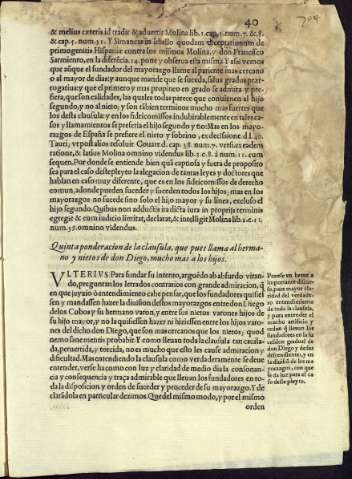 40
& melius cæteris id tradit & advertit Molina lib. 1. cap. 1. num. 7. & 8.
& cap. 5. num. 31. Y Simancas in libello quodam de
primogenitis Hispaniæ contra los mismos Molina, y don Francisco
Sarmiento, en la diferēcia. 14. pone y observa esta misma Y assi vemos
que aūque el fundador del mayorazgo llame al pariente mas cercano
o al mayor de dias; y aunque mande que se suceda, salua grados
rogatiua; que el primero y mas propinco en grado se admita y pre-
fiera, que son calidades, las quales todas parece que conuienen al hijo
segundo, y no al nieto, y son tābien terminos mucho mas fuertes que
los desta clausula: y en los fideicomissos indubitablemente en tales ca-
sos y llamamientos se preferia el hijo segundo y no: Mas en los mayo-
razgos de España se prefiere el nieto y sobrino, ex decisione. d. l. 40.
Tauri, vt post alios resoluit Couarr. d. cap. 38. num. 7. versus eadem
ratione, & latius Molina omnino videndus lib. 3. c. 8. à num. 11. cum
sequen. Por donde se entiende bien quā captiosa y fuera de proposito
sea para el caso deste pleyto la alegacion de tantas leyes y doctores que
hablan en caso muy diferente, que es en los fideicomissos de derecho
comun, adonde pueden suceder y suceden todos los hijos; mas en los
mayorazgos no sucede sino solo el hijo mayor y su linea, excluso el
hijo segundo. Quibus non adductis ita dicta iura in proprijs terminis
egregiè & cum iudicio limitat, declarat, & intelligit Molina lib. 1. c. 1.
num. 5. omnino videndus.
Quinta ponderacion de la clausula, que pues llama al herma-
no y nietos de don Diego, mucho mas a los hijos.
VLTERIVS. Para fundar su intento, arguēdo ab absurdo vitan-
do, preguntan los letrados contrarios con grande admiracion, q̃
en que juyzio o entendimiento cabe pensar, que los fundadores qui sies-
sen y mandassen hazer la diuision destos mayorazgos entre don Diego
delos Cobos y su hermano varon, y entre sus nietos varones hijos de
su hijo mayor, y no la quisiessen hazer ni hiziessen entre los hijos varo-
nes del dicho don Diego, que son mas cercanos que los nietos; quod
nemo sanæ mentis probabit Y como lleuan toda la clausula tan
da, peruertida, y torcida, no es mucho que esto les cause admiracion y
dificultad: Mas entendiendo la clausula como verdaderamente se deue
entender, verse ha como con luz y claridad de medio dia la consonan-
cia y consequencia y traça admirable que lleuan los fundadores en to-
da la disposicion y orden de suceder y proceder de su mayorazgo. Y de
claràdola en particular dezimos. Que del mismo modo, y por el mismo
orden
Ponese un breve e
importante discurso,
para mayor cla-
ridad del verdade-
ro entendimiento
de toda la clausula,
y para entender el
mucho artificio y
orden q̃ lleuan los
fundadores en la su
cession gradual de
don Diego y de sus
descendientes, y en
la diuision de los ma-
yorazgos, con que
se da luz para el ca
so deste pleyto.